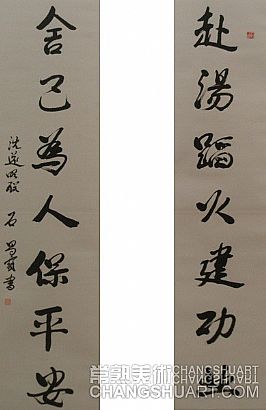 赴湯蹈火建功
舍己為人保平安
沈 明 石 書
常熟美術 CHANGSHUART
CHANGSHUART.COM